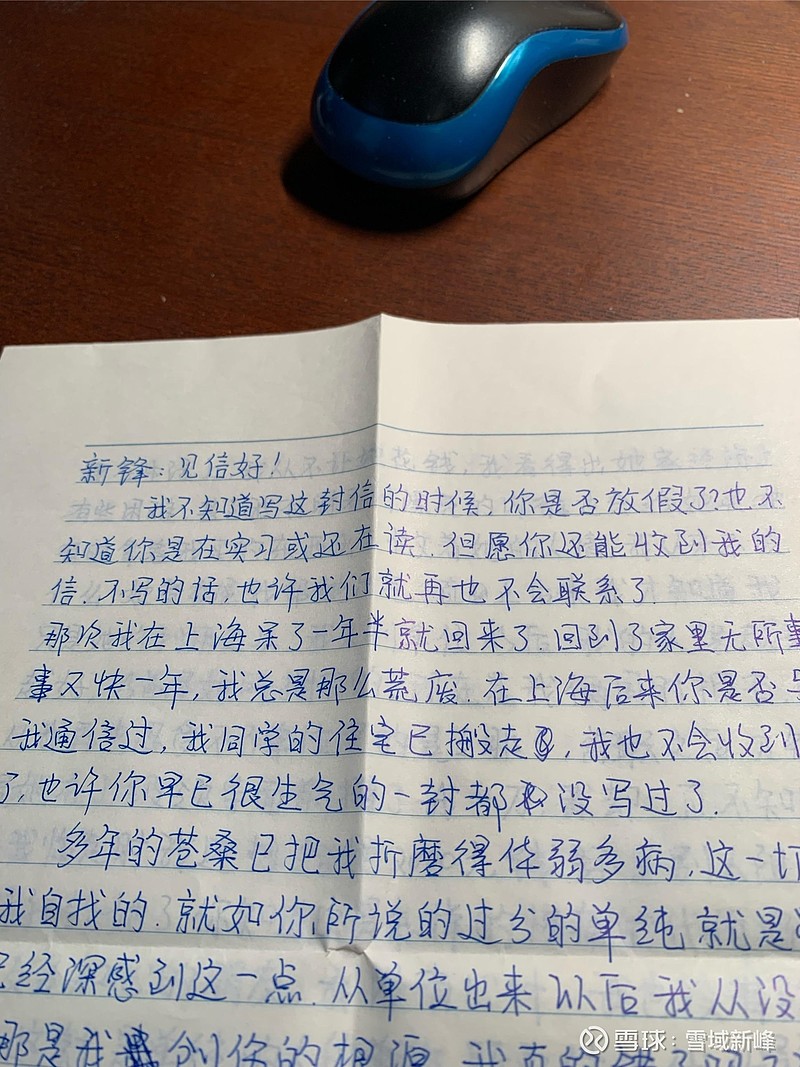 新锋：见信好！
我不知道写这封信的时候，你是否放假了？也不
知道你是在实习或还在读，但愿你还能收到我的
信。不写的话，也许我们就再也不会联系了。
那次我在上海呆了一年半就回来了。回到了家里无所事
事又快一年，我总是那么荒废。在上海后来你是否与
我通信过，我同学的住宅已搬走，我也不会收到
了，也许你早已很生气的一封都没写过了。
多年的苍桑已把我折磨得体弱多病，这一切
我自找的。就如你所说的过分的单纯就是
经深感到这一点。从单位出来以后我从没
那是我创你的根源，我真的错了吗？
雪球：雪域新峰